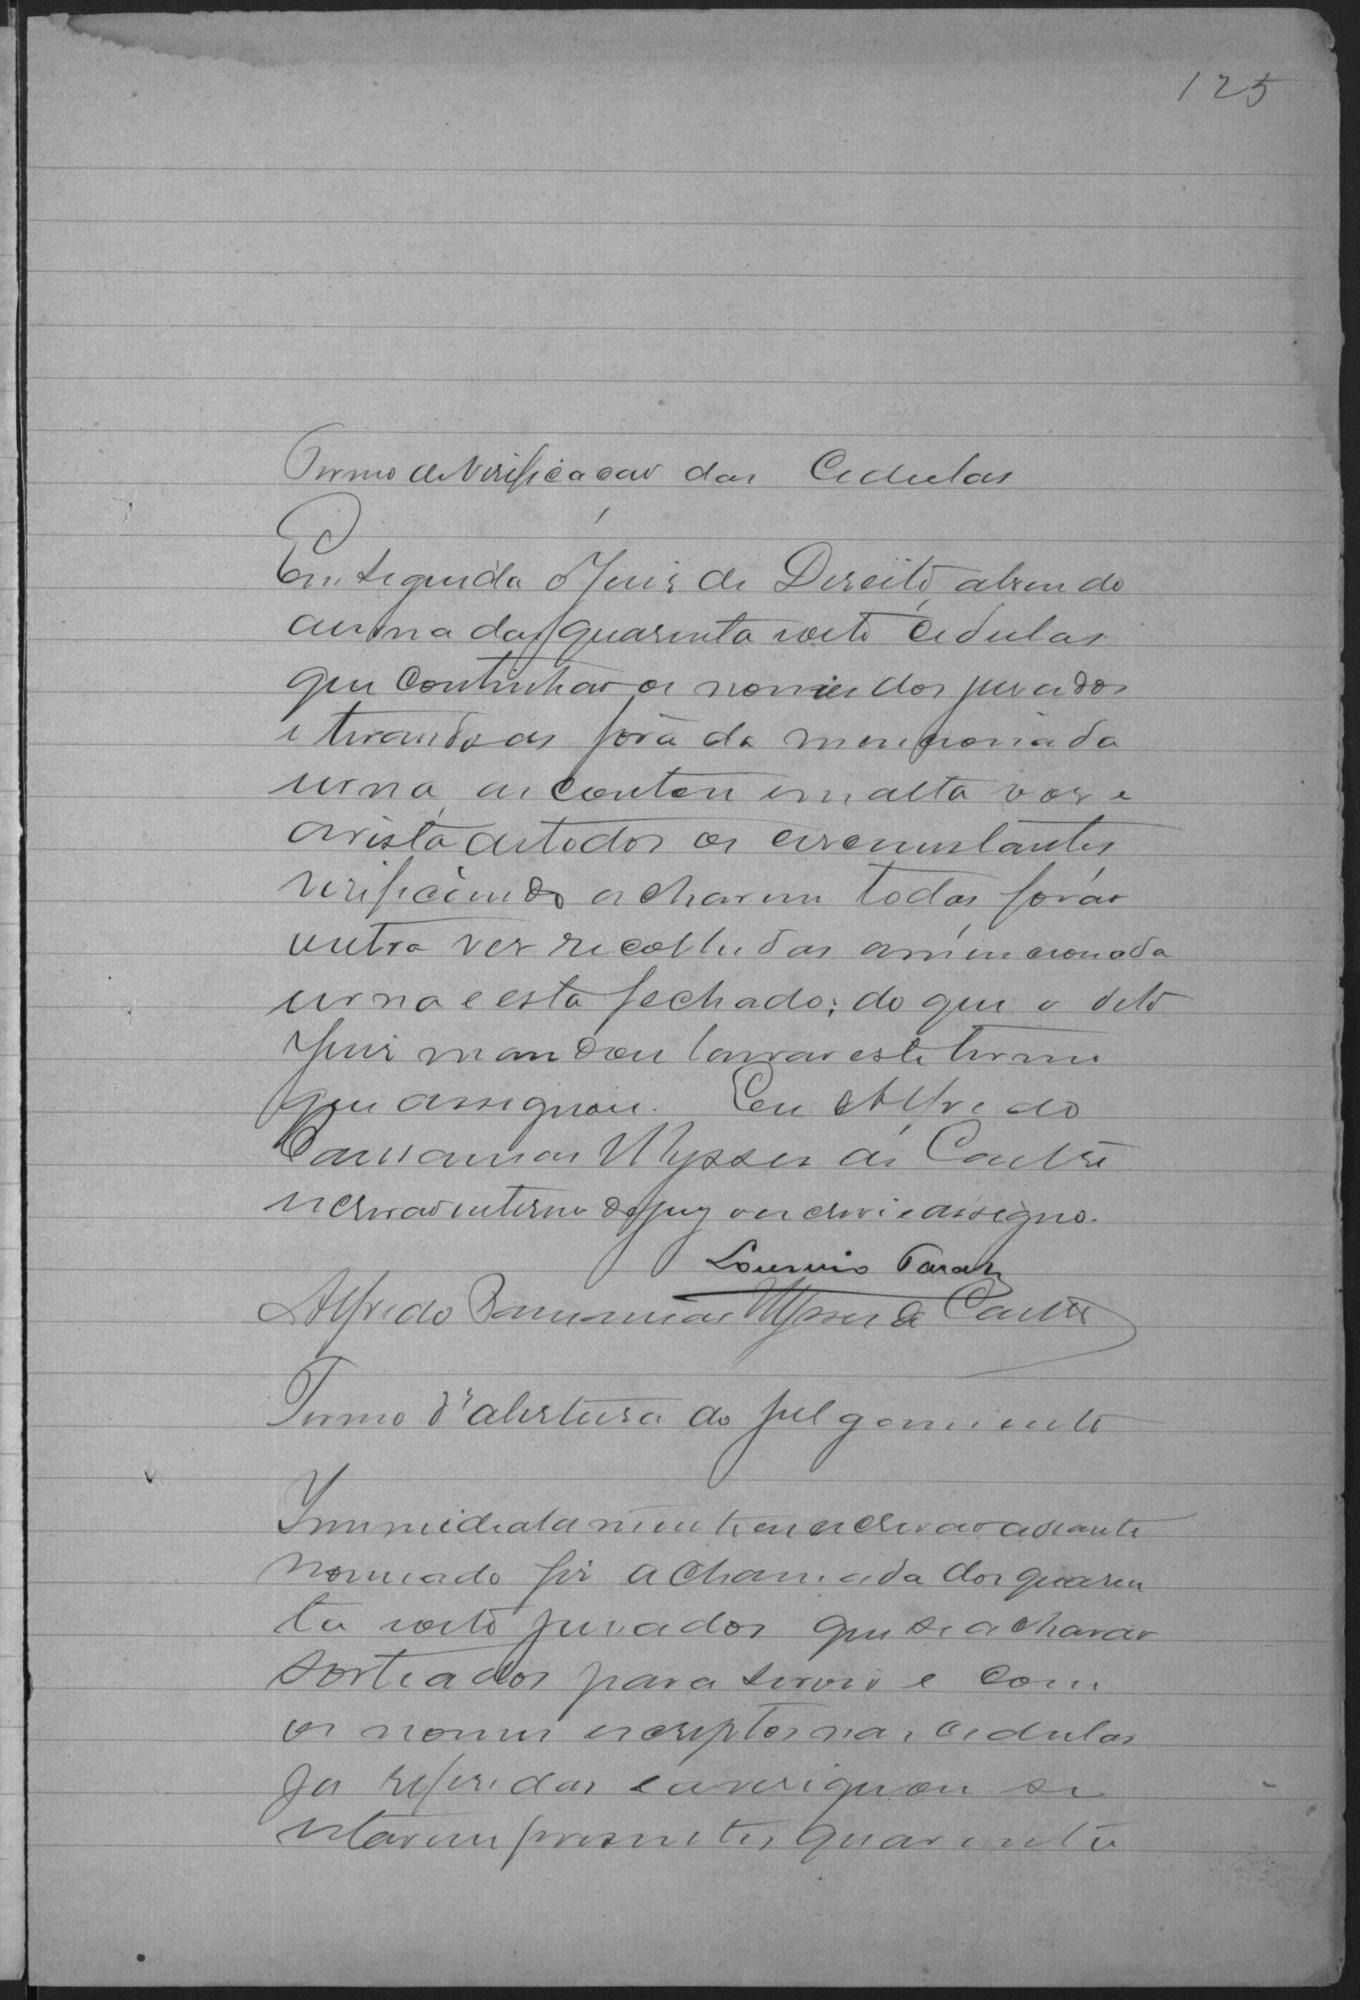 125
Termo de Verificacao das Cedulas
Em seguida o Juis de Direito, abrindo
a urna das quarenta e oito cedulas
que continhao os nomes dos jurados
e tirando as fora da mencionada
urna, as contou em alta vos e
a vista de todos os circunstantes
verificando acharem todas forão
outra ves recolhidas a mencionada
urna e esta fechado; do que o dito
Juis mandou lavrar este termo
que assignou. Eu Alfredo
Ulysses de Castro
escrivao interino do jury o escrevi e assigno.
Lourenio
Alfredo Ulysses de Castro
Termo d'abertura do julgamento
Immediatamente eu escrivao adiante
nomeado fis a chamada dos quaren
ta e oito jurados que se acharao
sorteados para servir e com
os nomes escriptos nas cedulas
ja referidas e averiguou se
estarem presentes quarenta